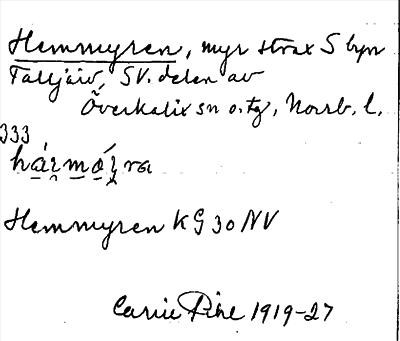 Hemmyren, myr strax S byn
Talljärv, SV. delen av
Överkalix sn o. tg, Norrb. l.
333
Hemmyren KG 30 NV
Carin Pihl 1919-27